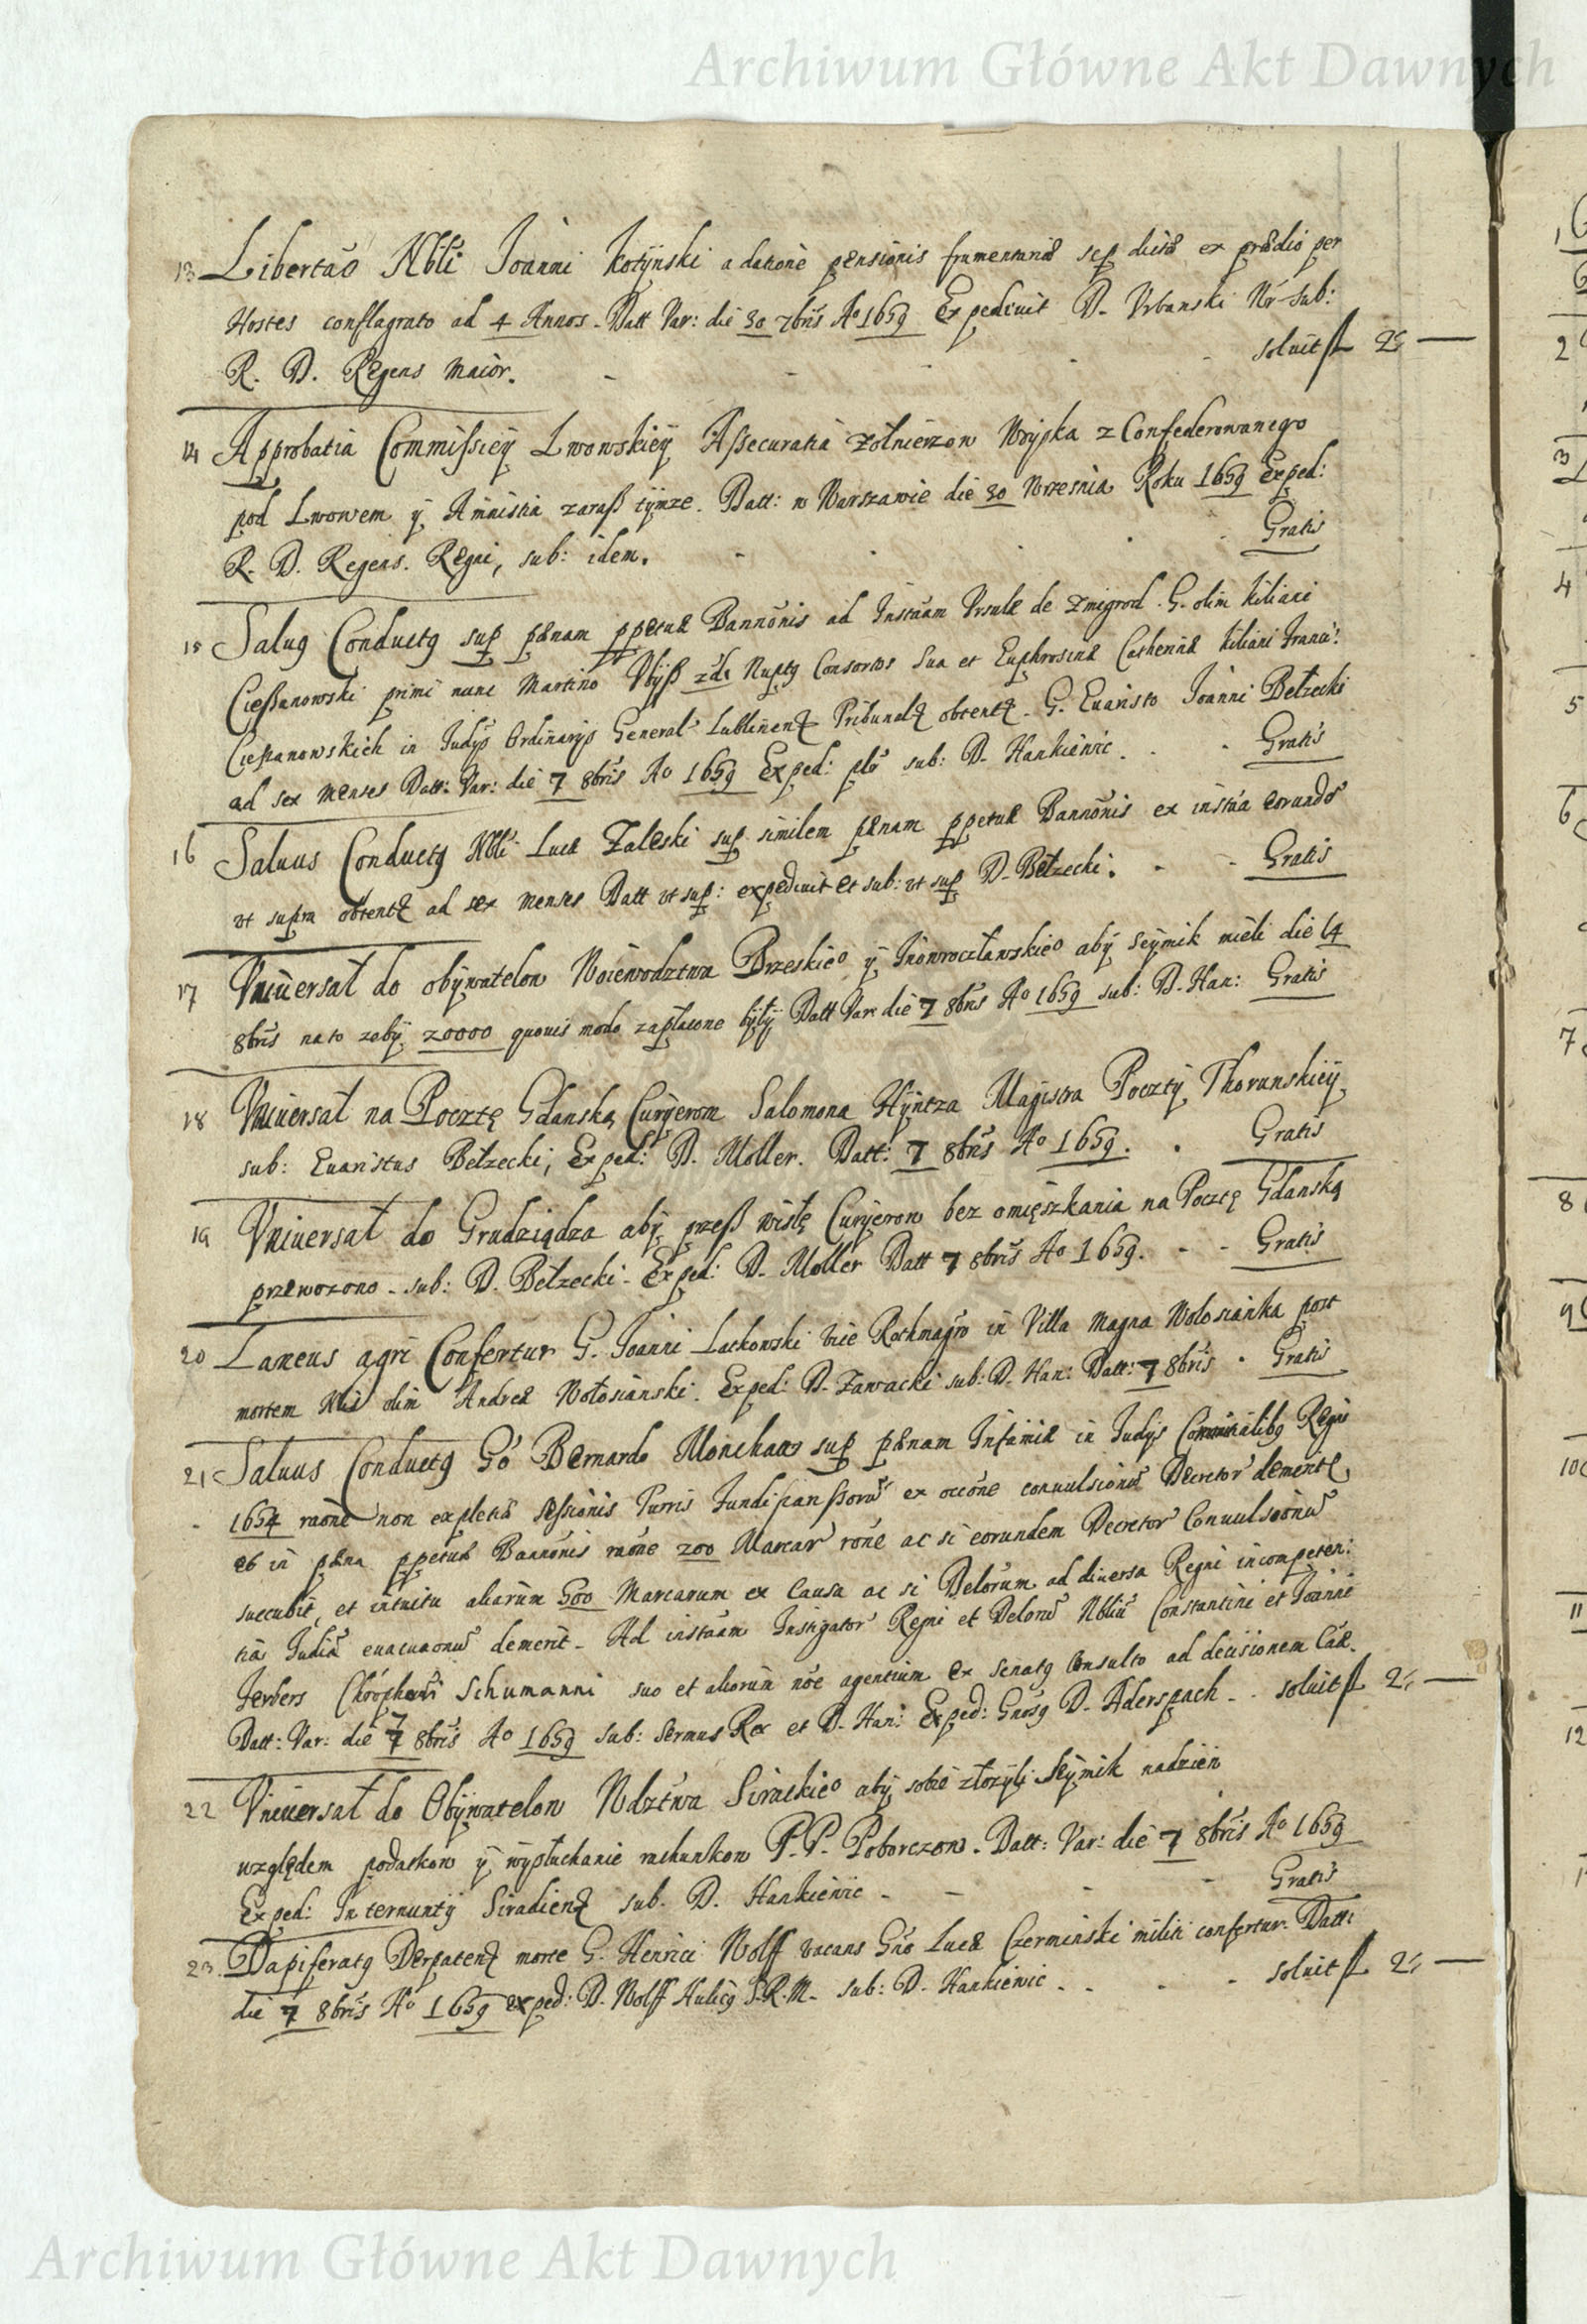 Archiwum Główne Akt Dawnych
13 Libertaõ Nbli Joanni Kotynski a datione pensionis frumentariæ sep dictæ ex prædio per
Hostes conflagrato ad 4 Annos. Datt Var: die 30 7bris Aº 1659 Expediuit D. Vrbanski Nr sub:
R. D. Regens Maior. soluit fl 2
14 Approbatia Commissiey Lwowskiey Assecuratia żołnierzow Woyska z Confederowanego
pod Lwowem y Amnistia zaraß tymze. Datt: w Warszawie die 30 Wrzesnia Roku 1659 Exped:
R. D. Regens. Regni, sub: idem. Gratis
15 Saluq Conductq sup pænam ppetuæ Bannõnis ad Instãm Vrsulæ de Zmigrod. G. olim Kiliani
Cießanowski primi nunc Martino Nuptq Consortis Sua et Euphrosinæ Catherinæ Kiliani Franci:
Cießanowskich in Judÿs Ordinarÿs General Lublinen Tribunal obtent. G. Euaristo Joanni Bełzecki
ad sex Menses Datt: Var: die 7 8bris Ao 1659 Exped: sub: D. Hankiewic. Gratis
16 Saluus Conductq Nbli Lucæ Zaleski sup similem pænam ppetuæ Bannõnis ex instãa eorundõ
vt supra obtent ad sex Menses Datt vt sup: expediuit et sub: vt sup D. Bełzecki. Gratis
17 Vniuersał do obywatelow Woiewodztwa Brzeskieº y Jnowrocławskieº aby Seymik mieli die 14
8bris na to zeby 20000 quouis modo zapłacone były Datt Var die 7 8bris Aº 1659 sub: D. Han: Gratis
18 Vniuersał na Pocztę Gdanską Curyerom Salomona Hyntza Magistra Poczty Thorunskiey
sub: Euaristus Bełzecki; Exped: D. Moller. Datt: 7 8bris Aº 1659. Gratis
19 Vniuersał do Grudziądza aby przeß wisłę Curyerow bez omięszkania na Pocztę Gdanską
przewozono. sub: D. Bełzecki. Exped: D. Moller Datt 7 8bris Aº 1659. Gratis
20 Laneus agri Confertur G. Joanni Lackowski vice Rothmagrõ in Villa Magna Wolosianka post
mortem Nbis olim Andreæ Wołosianski. Exped: D. Zawacki sub: D. Han: Datt: 7 8bris Gratis
21 Saluus Conductq Gõ Bernardo Monchaus sup pænam Infamiæ in Judÿs Comitialibq Regni
1654 raõne non expletæ sessionis Turris ex occõne conuulsionũ Decretor dement
et in pæna ppetuæ Bannõnis raõne 200 Marcar rõne ac si eorundem Decretor Conuulsionũ
succubit, et intuitu aliarum 500 Marcarum ex Causa ac si Delorum ad diuersa Regni incompeten:
tia Judia euacuaonũ demerit. Ad instãam Instigator Regni et Delorũ Nbliũ Constantini et Joanni
Ferbers Schumanni suo et aliorum nõe agentium ex Senatq Consulto ad decisionem Cãæ.
Datt: Var: die 7 8bris Aº 1659 sub: Sermus Rex et D. Han: Exped: Gnõsq D. Aderspach. soluit fl 2
22 Vniuersał do Obywatelow Wdztwa Siradskieº aby sobie złozyli Seymik nadzien
względem podatkow y wysłuchanie rachunkow P. P. Poborczow. Datt: Var: die 7 8bris Aº 1659
Exped: Internuntÿ Siradien sub. D. Hankiewic Gratis
23. Dapiferatq Derpaten morte G. Henrici Wolff vacans Gnõ Lucæ Czerminski militi confertur. Datt:
die 7 8bris Aº 1659 exped: D. Wolff Aulicq S.R.M. sub: D. Hankiewic. soluit fl 2
Archiwum Główne Akt Dawnych